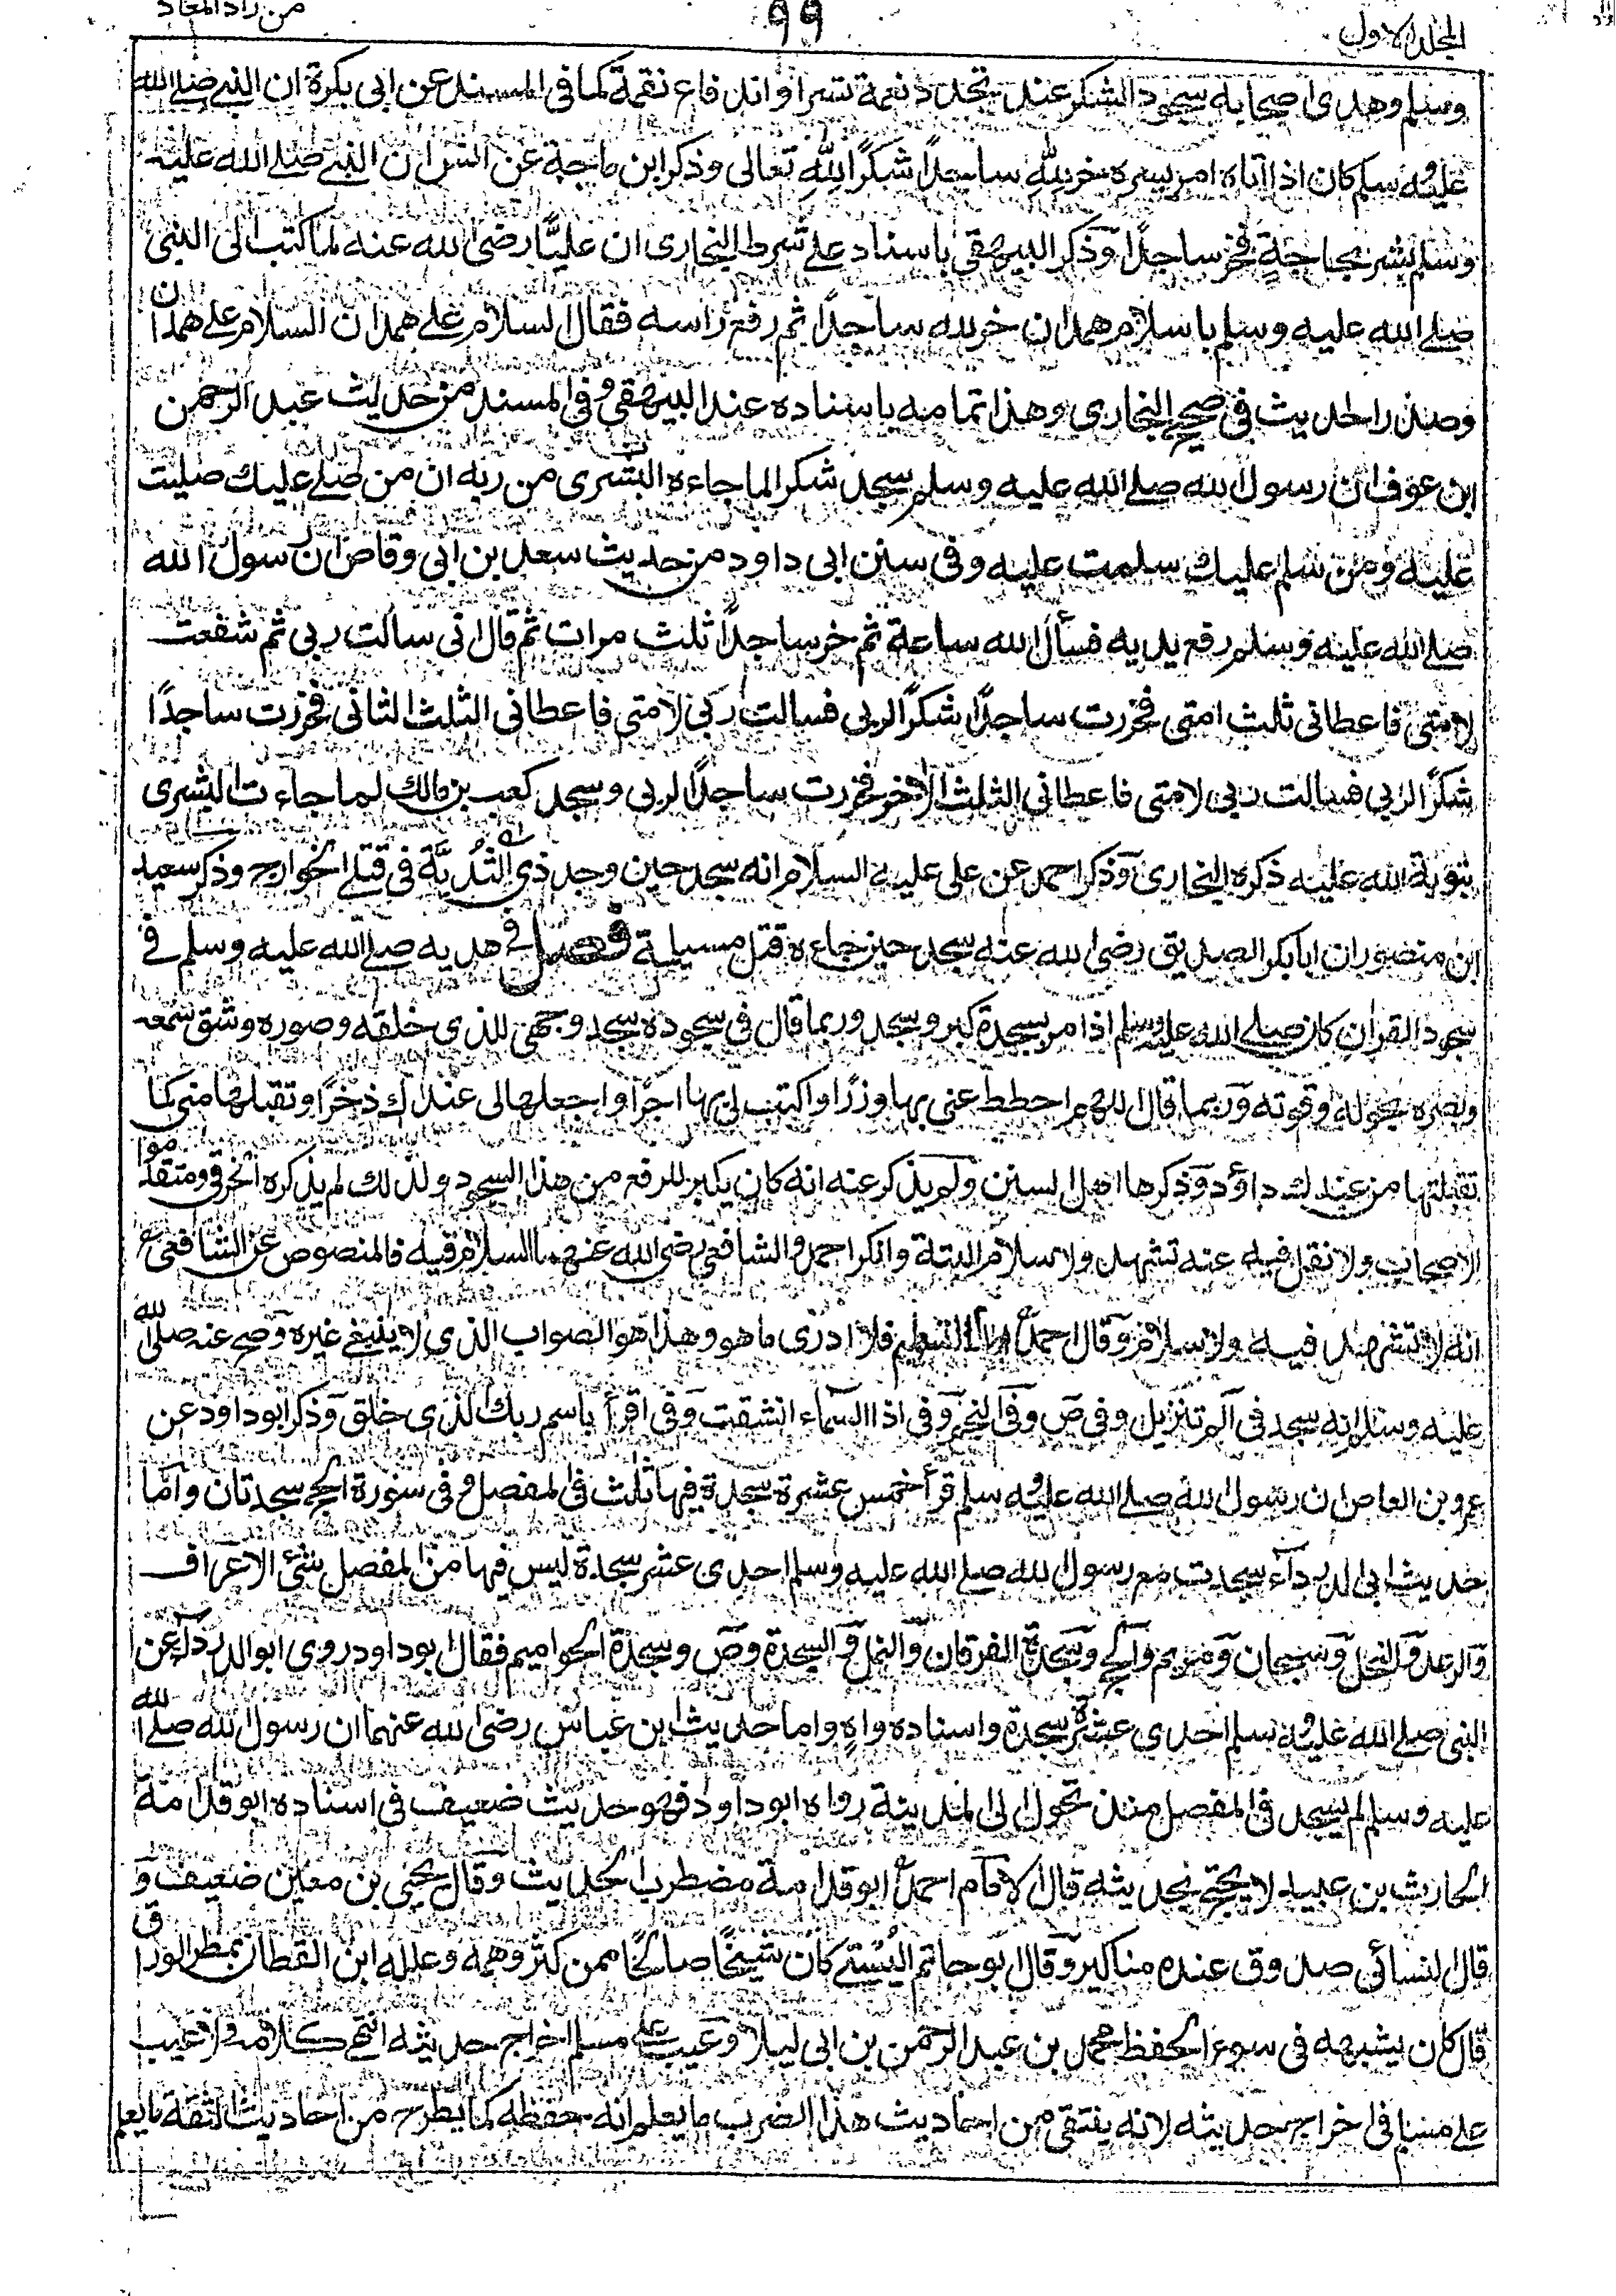 المجلد الاول
٩٩
من زاد المعاد
وسلم وهدى اصحابه سجود الشكر عند تجدد نعمة تسر او اندفاع نقمة كما فى المسند عن ابى بكرة ان النبى صلے الله
عليه وسلم كان اذا اتاه امر يسره خر لله ساجداً شكرًا لله تعالى وذكر ابن ماجة عن انس ان النبى صلے الله عليه
وسلم بشر بحاجةٍ فخر ساجداً وذكر البيهقى باسناد على شرط البخارى ان عليًّا رضى الله عنه لما كتب الى النبى
صلے الله عليه وسلم باسلام همدان خر لله ساجداً ثم رفع راسه فقال السلام على همدان السلام على همدان
وصدر الحديث فى صحيح البخارى وهذا تمامه باسناده عند البيهقى وفى المسند من حديث عبد الرحمن
ابن عوف ان رسول الله صلے الله عليه وسلم سجد شكرا لما جاءه البشرى من ربه ان من صلے عليك صليت
عليه ومن سلم عليك سلمت عليه وفى سنن ابى داود من حديث سعد بن ابى وقاص ان رسول الله
صلے الله عليه وسلم رفع يديه فسأل الله ساعة ثم خر ساجداً ثلث مرات ثم قال انى سالت ربى ثم شفعت
لامتى فاعطانى ثلث امتى فخررت ساجداً شكرًا لربى فسالت ربى لامتى فاعطانى الثلث الثانى فخررت ساجدًا
شكرًا لربى فسالت ربى لامتى فاعطانى الثلث الاخر فخررت ساجداً لربى وسجد كعب بن مالك لما جاءت البشرى
بتوبة الله عليه ذكره البخارى وذكر احمد عن على عليه السلام انه سجد حين وجد ذى الثُّديَّة فى قتلے الخوارج وذكر سعيد
ابن منصور ان ابابكر الصديق رضى الله عنه سجد حين جاءه قتل مسيلمة فصل فى هديه صلے الله عليه وسلم فى
سجود القران كان صلے الله عليه وسلم اذا مر بسجدة كبر وسجد وربما قال فى سجوده سجد وجهى للذى خلقه وصوره وشق سمعه
وبصره بحوله وقوته وربما قال اللهم احطط عنى بها وزرًا واكتب لى بها اجرًا واجعلها لى عندك ذخرًا وتقبلها منى كما
تقبلتها من عبدك داؤد وذكرها اهل السنن ولم يذكر عنه انه كان يكبر للرفع من هذا السجود ولذلك لم يذكره الخرقى ومتقدموا
الاصحاب ولا نقل فيه عنه تشهد ولا سلام البتة وانكر احمد والشافعى رضى الله عنهما السلام فيه فالمنصوص عن الشافعى
انه لا تشهد فيه ولا سلام وقال احمد اما التسليم فلا ادرى ما هو وهذا هو الصواب الذى لا ينبغے غيره وصح عنه صلے الله
عليه وسلم انه سجد فى الم تنزيل وفى ص وفى النجم وفى اذا السماء انشقت وفى اقرأ باسم ربك الذى خلق وذكر ابو داود عن
عمرو بن العاص ان رسول الله صلے الله عليه وسلم قرأ خمس عشرة سجدة فيها ثلث فى المفصل وفى سورة الحج سجدتان واما
حديث ابى الدرداء سجدت مع رسول الله صلے الله عليه وسلم احدى عشر سجدة ليس فيها من المفصل شئ الاعراف
والرعد والنحل وسبحان ومريم والحج وسجدة الفرقان والنمل والسجدة وص وسجدة الحواميم فقال ابو داود روى ابو الدرداء عن
النبى صلے الله عليه وسلم احدى عشرة سجدة واسناده واهٍ واما حديث ابن عباس رضى الله عنهما ان رسول الله صلے الله
عليه وسلم لم يسجد فى المفصل منذ تحول الى المدينة رواه ابو داود فهو حديث ضعيف فى اسناده ابو قدامة
الحارث بن عبيد لا يحتج بحديثه قال الامام احمد ابو قدامة مضطرب الحديث وقال يحيى بن معين ضعيف و
قال النسائى صدوق عنده مناكير وقال ابو حاتم البُستے كان شيخًا صالحًا ممن كثر وهمه وعلله ابن القطان بمطر الوراق
قال كان يشبهه فى سوء الحفظ محمد بن عبد الرحمن بن ابى ليلا وعيب على مسلم اخراج حديثه انتهى كلامه ولا عيب
على مسلم فى اخراج حديثه لانه ينتقى من احاديث هذا الضرب ما يعلم انه حفظه كما يطرح من احاديث الثقة ما يعلم